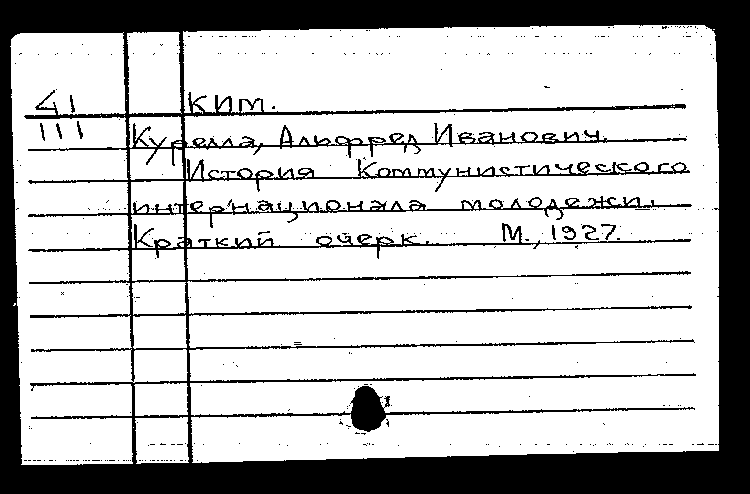 41 КИМ.
111
Курелла, Альфред Иванович.
История Коммунистического
интернационала молодежи.
Краткий очерк. М., 1927.